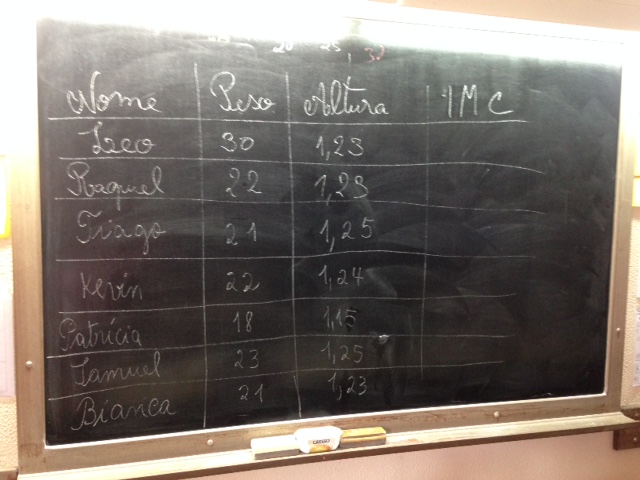 20 25
Nome Peso Altura IMC
Leo 30 1,23
Raquel 22 1,23
Tiago 21 1,25
Kevin 22 1,24
Patrícia 18 1,15
Samuel 23 1,25
Bianca 21 1,23